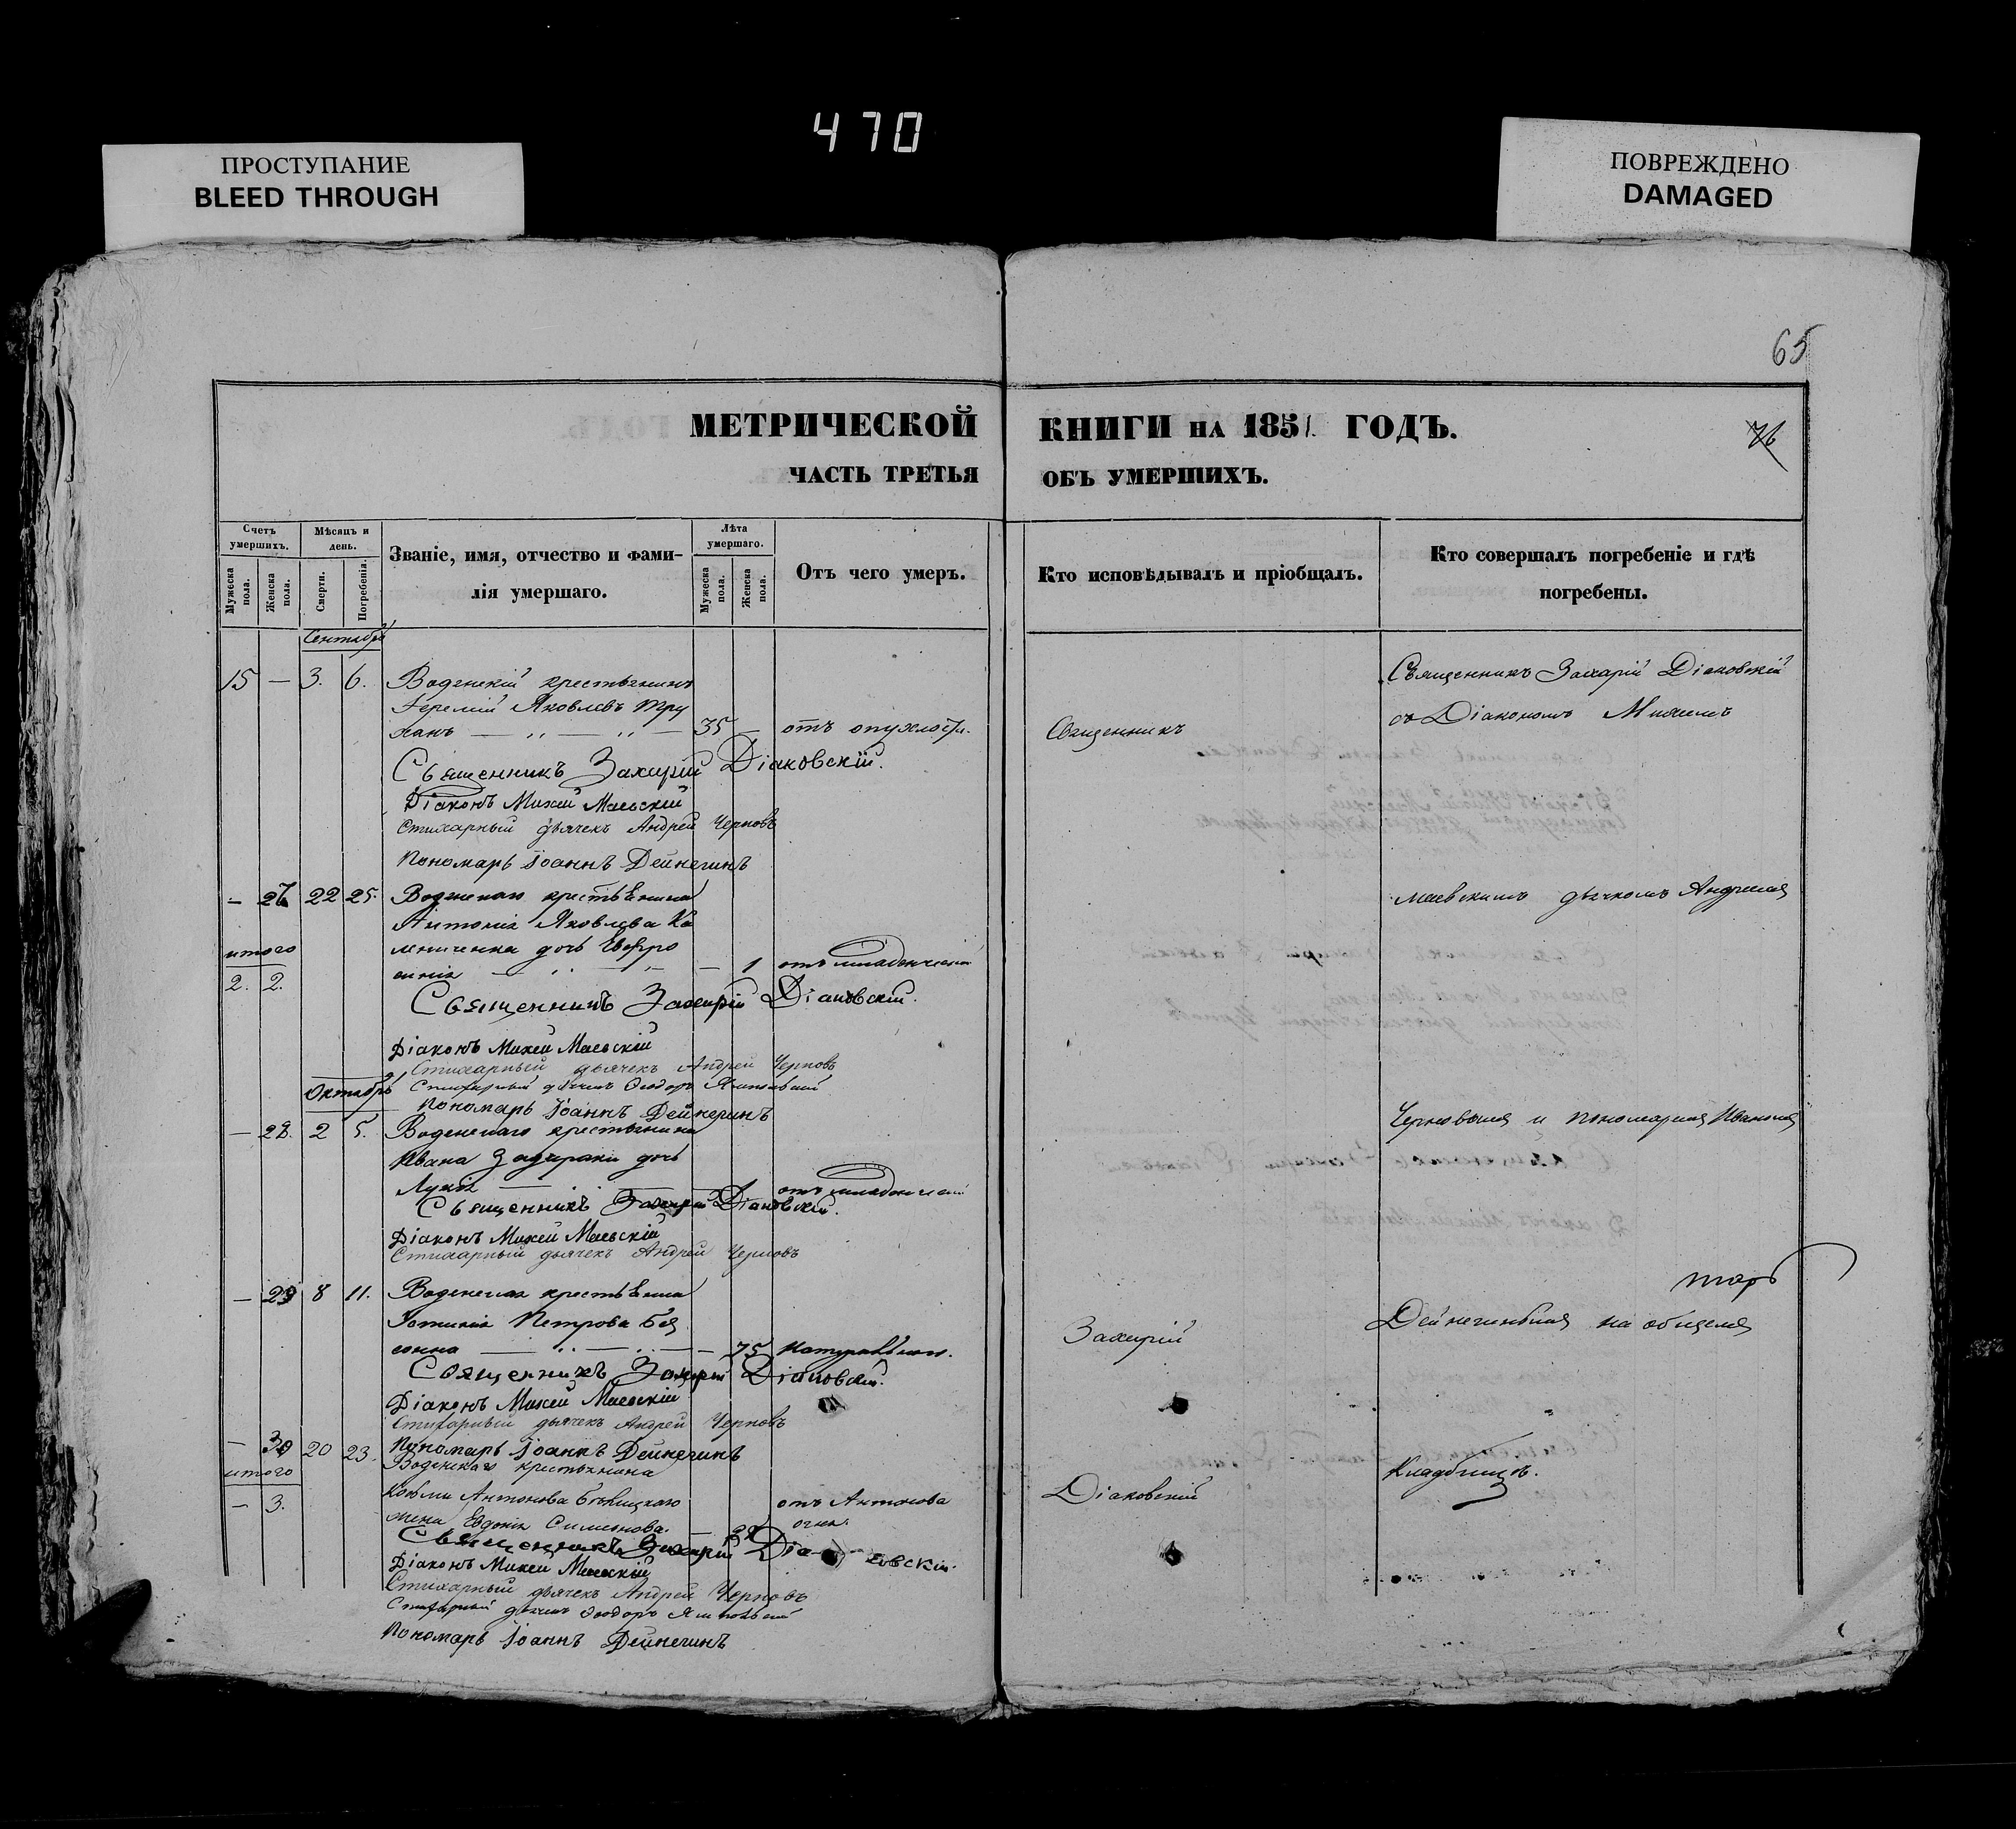 470
ПРОСТУПАНИЕ
BLEED THROUGH
ПОВРЕЖДЕНО
DAMAGED
65
МЕТРИЧЕСКОЙ КНИГИ НА 1851 ГОДЪ.
76
ЧАСТЬ ТРЕТЬЯ ОБЪ УМЕРШИХЪ.
Счетъ умершихъ.
Мужеска пола.
Женска пола.
Мѣсяцъ и день.
Смерти.
Погребенія.
Званіе, имя, отчество и фами-
лія умершаго.
Лѣта умершаго.
Мужеска пола.
Женска пола.
Отъ чего умеръ.
Кто исповѣдывалъ и пріобщалъ.
Кто совершалъ погребеніе и гдѣ
погребены.
Сентябрь
15 — 3. 6. Водянскій крестьянинъ
Іеремій Яковлевъ Тру
ханъ — 35 — отъ опухлости.
Священникъ Захарій Діаковскій.
Діаконъ Михей Маевскій
Стихарный дьячекъ Андрей Черновъ
Пономарь Іоаннъ Дейнегинъ
Священникъ
Священникъ Захарій Діаковскій
съ Діакономъ Михеемъ
— 27 22 25. крестьянина
Яковлева Ка
дочь Евфро
синія — 1 отъ младенческой
итого
2. 2.
Священникъ Захарій Діаковскій.
Діаконъ Михей Маевскій
Стихарный дьячекъ Андрей Черновъ
Стихарный дьячекъ Ѳеодоръ
Пономарь Іоаннъ Дейнегинъ
Маевскимъ дьячкомъ Андреемъ
Октябрь
— 28. 2 5. Водянскаго крестьянина
Ивана дочь
— отъ младенческой
Священникъ Захарій Діаковскій.
Діаконъ Михей Маевскій
Стихарный дьячекъ Андрей Черновъ
Черновымъ и пономаремъ Иваномъ
— 29 8 11. Водянская
Петрова
— 75
Священникъ Захарій Діаковскій.
Діаконъ Михей Маевскій
Стихарный дьячекъ Андрей Черновъ
Пономарь Іоаннъ Дейнегинъ
Захарій
Дейнегинымъ на общемъ
— 30 20 23. Водянскаго крестьянина
Антонова
жена Евдокія Симеонова. отъ Антонова
огня.
итого
— 3.
Священникъ Захарій Діаковскій.
Діаконъ Михей Маевскій
Стихарный дьячекъ Андрей Черновъ
Стихарный дьячекъ Ѳеодоръ
Пономарь Іоаннъ Дейнегинъ
Діаковскій
Кладбищѣ.